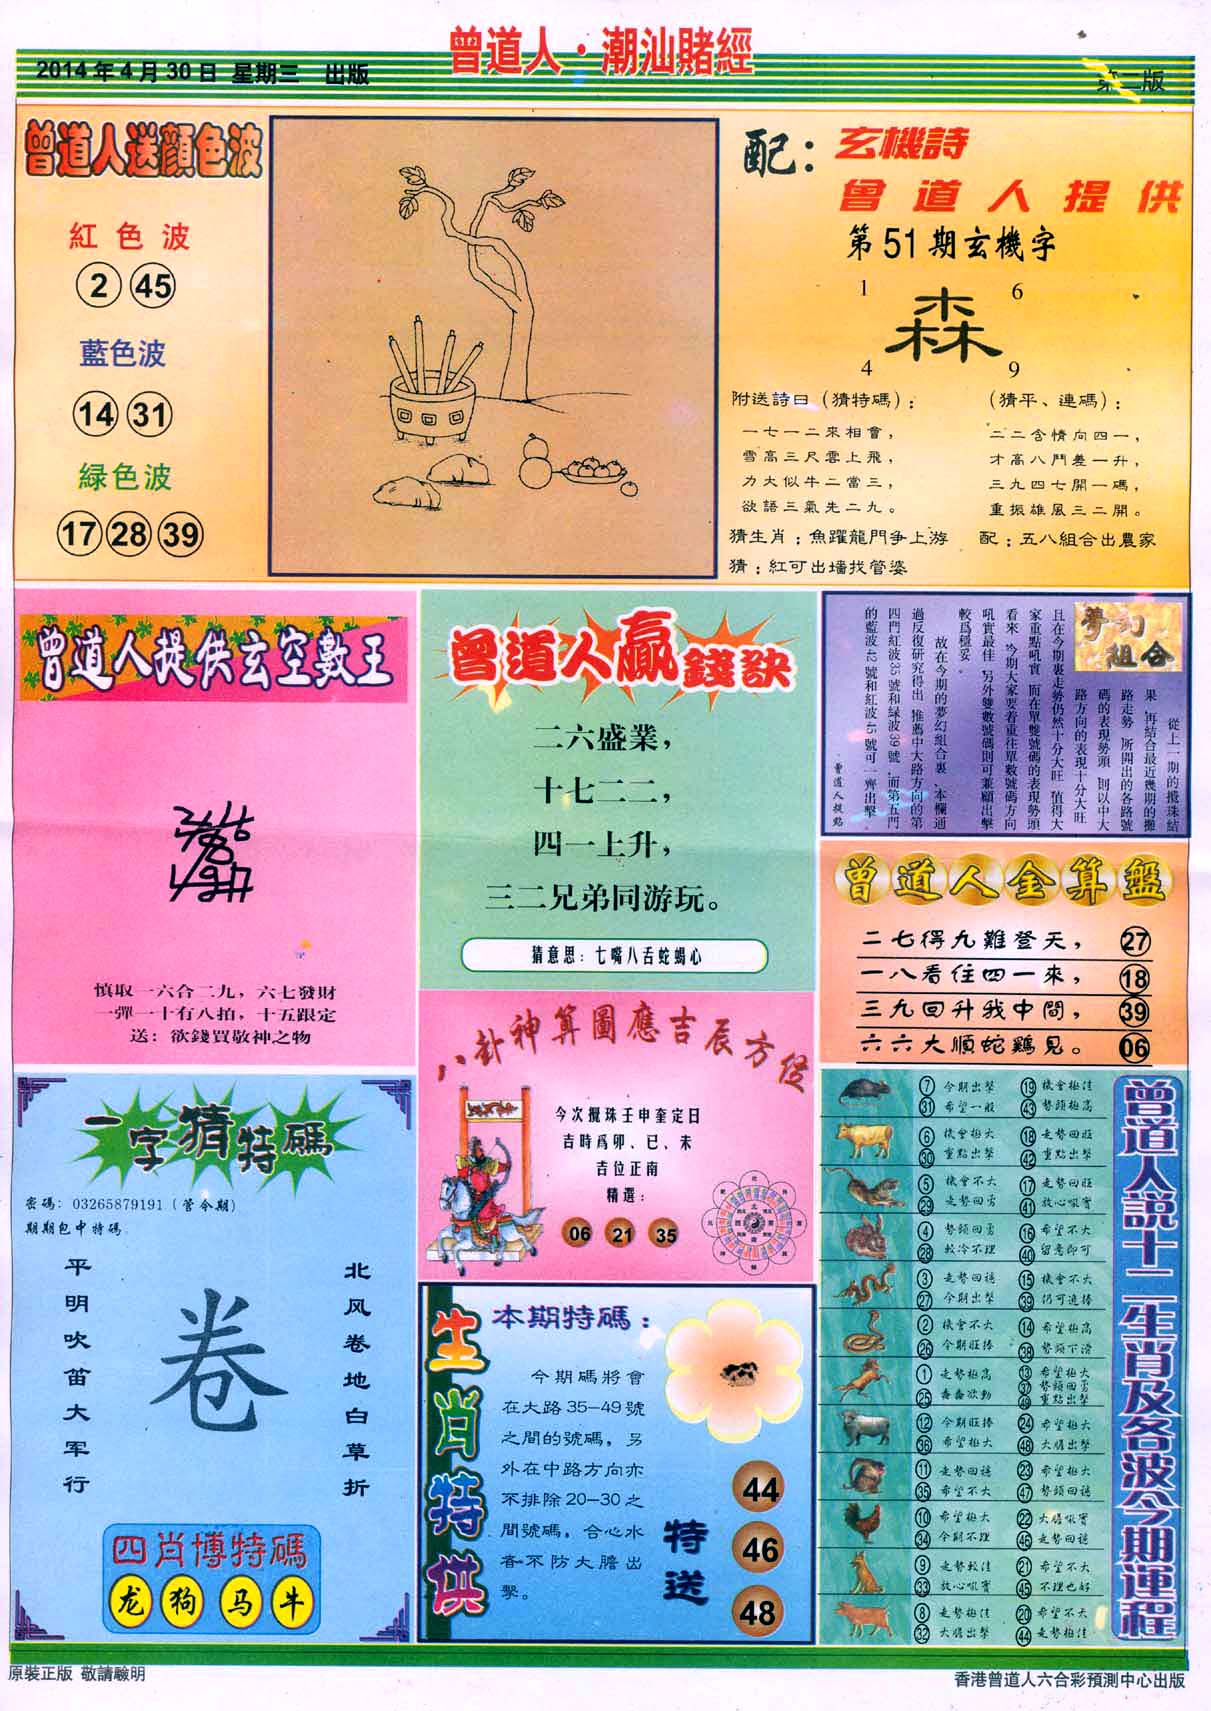 曾道人·潮汕賭經
2014年4月30日 星期三 出版
第二版
曾道人送顔色波
紅色波
2 45
藍色波
14 31
緑色波
17 28 39
配:
玄機詩
曾道人提供
第51期玄機字
1 6
森
4 9
附送詩曰(猜特碼):
一七一二來相會,
雪高三尺雲上飛,
力大似牛二當三,
欲語三氣先二九。
(猜平、連碼):
二二含情向四一,
才高八鬥差一升,
三九四七開一碼,
重振雄風三二開。
猜生肖:魚躍龍門爭上游
配:五八組合出農家
猜:紅可出墻找管婆
曾道人提供玄空數王
慎取一六合二九,六七發財
一彈一十有八拍,十五跟定
送:欲錢買敬神之物
曾道人贏錢訣
二六盛業,
十七二二,
四一上升,
三二兄弟同游玩。
猜意思:七嘴八舌蛇蝎心
夢幻組合
從上一期的攪珠結
果,再結合最近幾期的攤
路走勢,所開出的各路號
碼的表現勢頭,則以中大
路方向的表現十分大旺
且在今期裘走勢仍然十分大旺,值得大
家重點吼實,而在單雙號碼的表現勢頭
看來,今期大家要着重往單數號碼方向
吼實最佳,另外雙數號碼則可兼顧出擊
較爲穩妥。
故在今期的夢幻組合裏,本欄通
過反復研究得出,推薦中大路方向的第
四門紅波35號和緑波39號,而第五門
的藍波42號和紅波45號可一齊出擊
曾道人提點
曾道人金算盤
二七得九難登天, 27
一八看住四一來, 18
三九回升我中間, 39
六六大順蛇鷄見。 06
一字猜特碼
密碼:03265879191(管令期)
期期包中特碼
北风卷地白草折
卷
平明吹笛大军行
四肖博特碼
龙 狗 马 牛
八卦神算圖應吉辰方位
今次攪珠壬申奎定日
吉時爲卯、巳、未
吉位正南
精選:
06 21 35
生肖特供
本期特碼:
今期碼將會
在大路35-49號
之間的號碼,另
外在中路方向亦
不排除20-30之
間號碼,合心水
者不防大膽出
擊。
特送
44
46
48
曾道人說十二生肖及各波今期運程
7 今期出擊 19 機會極佳
31 希望一般 43 勢頭極高
6 機會極大 18 走勢回旺
30 重點出擊 42 重點出擊
5 機會不大 17 走勢回旺
29 走勢回勇 41 放心吼實
4 勢頭回勇 16 希望不大
28 較冷不理 40 留意即可
3 走勢回穩 15 機會不大
27 今期出擊 39 仍可追捧
2 機會不大 14 希望極高
26 今期旺捧 38 勢頭下滑
1 走勢極高 13 希望極大
25 蠢蠢欲動 37 勢頭回勇
49 重點出擊
12 今期旺捧 24 希望極大
36 希望極大 48 大膽出擊
11 走勢回穩 23 希望極大
35 希望不大 47 勢頭回穩
10 希望極大 22 大膽吼實
34 今期不理 46 走勢回穩
9 走勢較佳 21 希望不大
33 放心吼實 45 不理也好
8 走勢極佳 20 希望不大
32 大膽出擊 44 走勢極佳
原裝正版 敬請驗明
香港曾道人六合彩預測中心出版